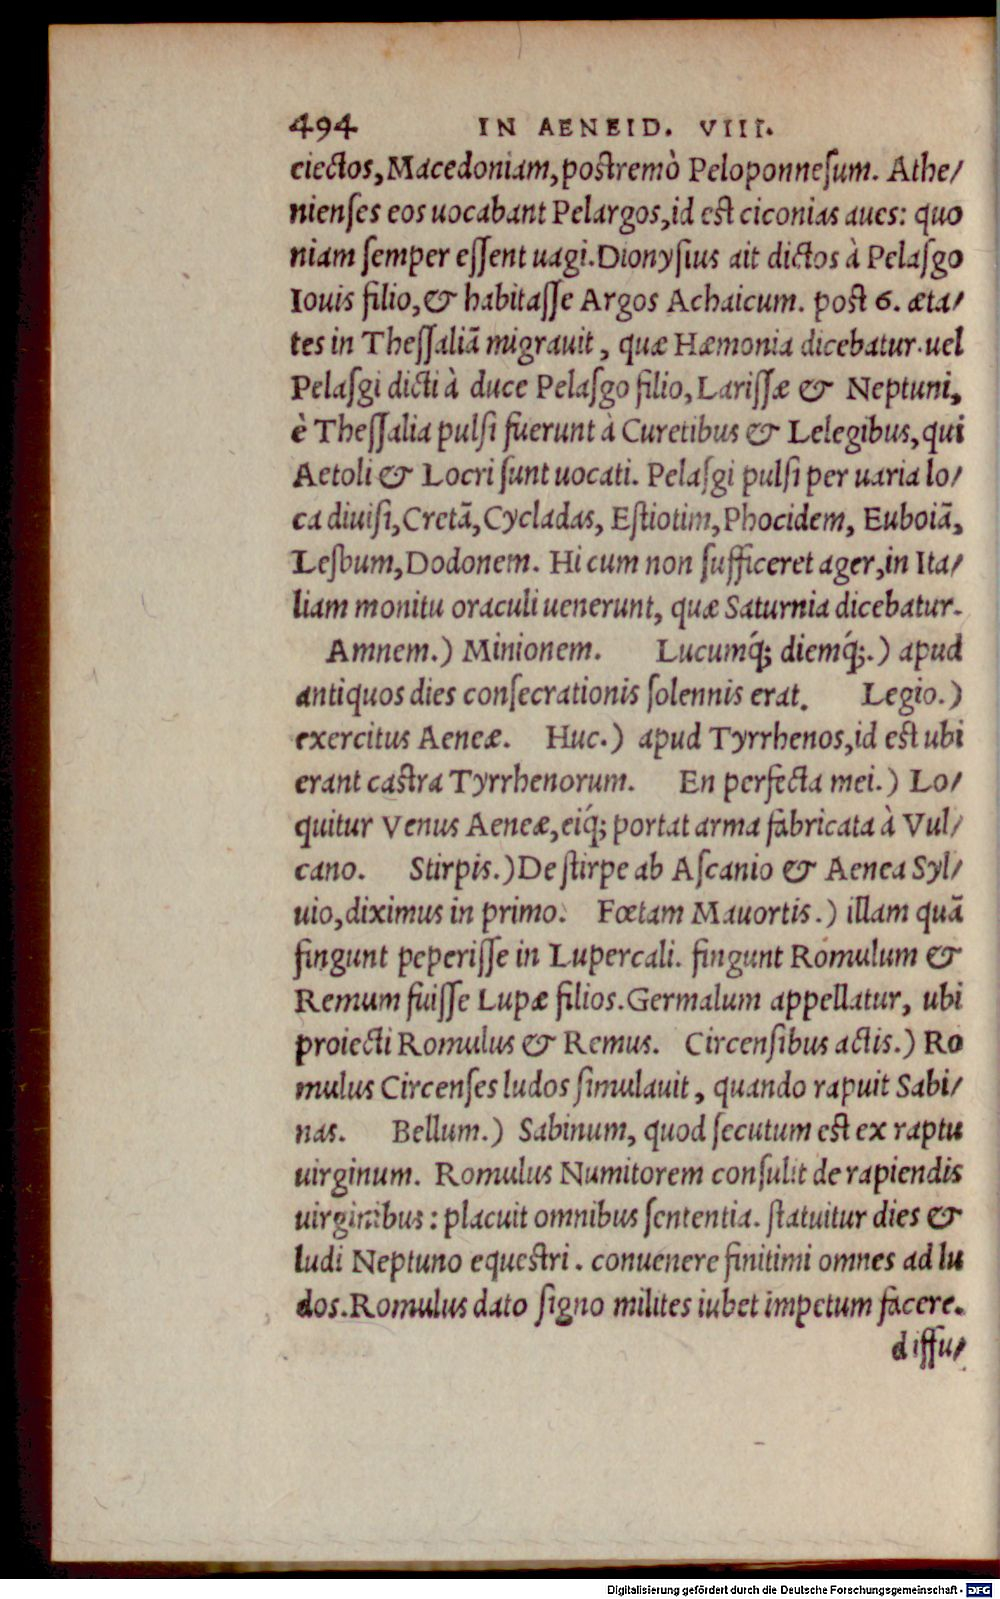 494 IN AENEID. VIII.
eiectos, Macedoniam, postremò Peloponneſum. Athe/
nienſes eos uocabant Pelargos, id est ciconias aues: quo
niam ſemper eſſent uagi. Dionyſius ait dictos à Pelaſgo
Iouis filio, & habitaſſe Argos Achaicum. post 6. æta/
tes in Theſſaliã migrauit, quæ Hæmonia dicebatur. uel
Pelaſgi dicti à duce Pelaſgo filio, Lariſſæ & Neptuni,
è Theſſalia pulſi fuerunt à Curetibus & Lelegibus, qui
Aetoli & Locri ſunt uocati. Pelaſgi pulſi per uaria lo/
ca diuiſi, Cretã, Cycladas, Eſtiotim, Phocidem, Euboiã,
Lesbum, Dodonem. Hi cum non ſufficeret ager, in Ita/
liam monitu oraculi uenerunt, quæ Saturnia dicebatur.
Amnem.) Minionem. Lucumq́; diemq́;.) apud
antiquos dies conſecrationis ſolennis erat. Legio.)
exercitus Aeneæ. Huc.) apud Tyrrhenos, id est ubi
erant castra Tyrrhenorum. En perfecta mei.) Lo/
quitur Venus Aeneæ, eiq́; portat arma fabricata à Vul/
cano. Stirpis.) De ſtirpe ab Aſcanio & Aenea Syl/
uio, diximus in primo. Fœtam Mauortis.) illam quã
fingunt peperiſſe in Lupercali. fingunt Romulum &
Remum fuiſſe Lupæ filios. Germalum appellatur, ubi
proiecti Romulus & Remus. Circenſibus actis.) Ro
mulus Circenſes ludos ſimulauit, quando rapuit Sabi/
nas. Bellum.) Sabinum, quod ſecutum est ex raptu
uirginum. Romulus Numitorem conſulit de rapiendis
uirginibus: placuit omnibus ſententia. ſtatuitur dies &
ludi Neptuno equestri. conuenere finitimi omnes ad lu
dos. Romulus dato ſigno milites iubet impetum facere.
diffu/
Digitalisierung gefördert durch die Deutsche Forschungsgemeinschaft - DFG